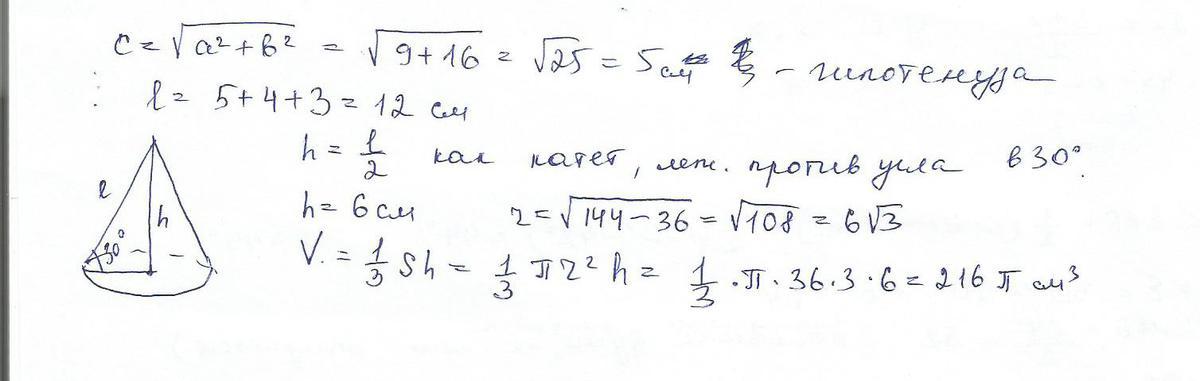 c = √a²+b² = √9+16 = √25 = 5 см - гипотенуза
l = 5+4+3 = 12 см
h = l/2 как катет, леж. против угла в 30°.
h = 6 см r = √144-36 = √108 = 6√3
V. = 1/3 Sh = 1/3 πr² h = 1/3 · π · 36 · 3 · 6 = 216 π см³
l
h
30°